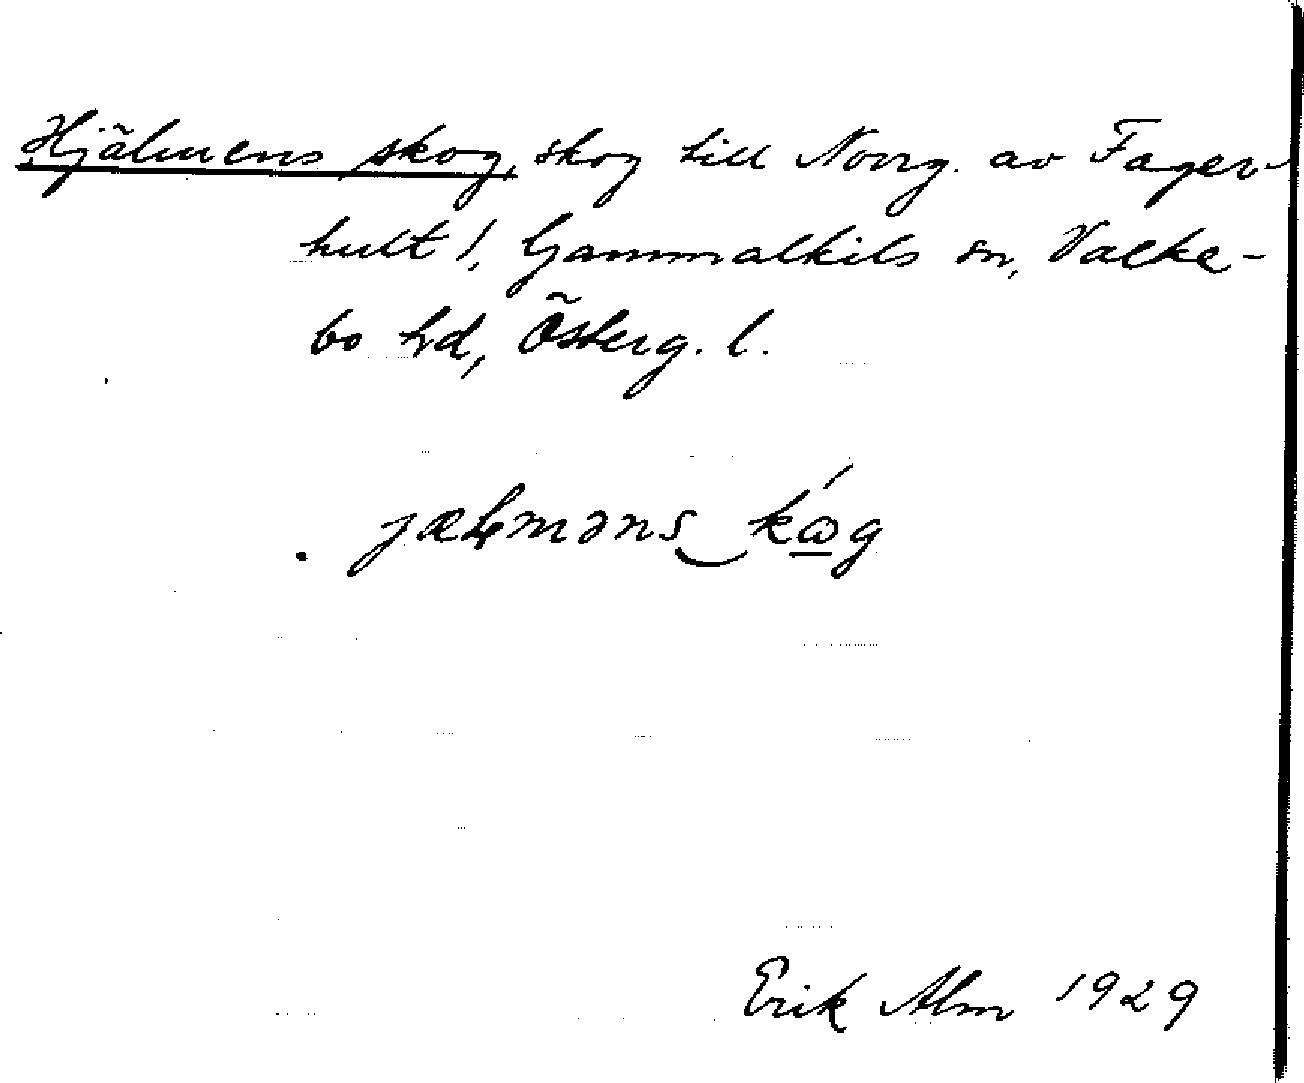 Hjälmens skog, skog till Norrg. av Fager-
hult 1, Gammalkils sn, Valke-
bo hd, Österg. l.
jæɫmǝns‿kɷ́g
Erik Alm 1929